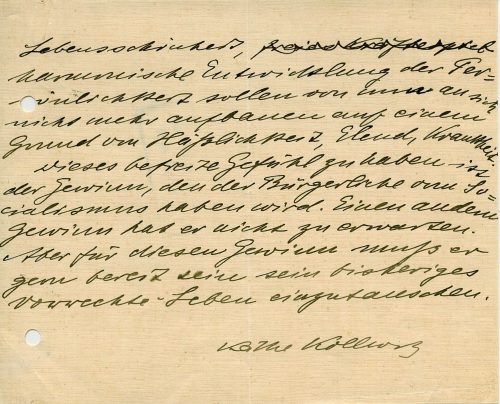 Lebensschönheit, freies Kräftespiel
harmonische Entwicklung der Per-
sönlichkeit sollen von nun an sich
nicht mehr aufbauen auf einem
Grund von Häßlichkeit, Elend, Krankheit.
Dieses befreite Gefühl zu haben ist
der Gewinn, den der Bürgerliche vom So-
cialismus haben wird. Einen andern
Gewinn hat er nicht zu erwarten.
Aber für diesen Gewinn muß er
gern bereit sein sein bisheriges
Vorrechte-Leben einzutauschen.
Käthe Kollwitz